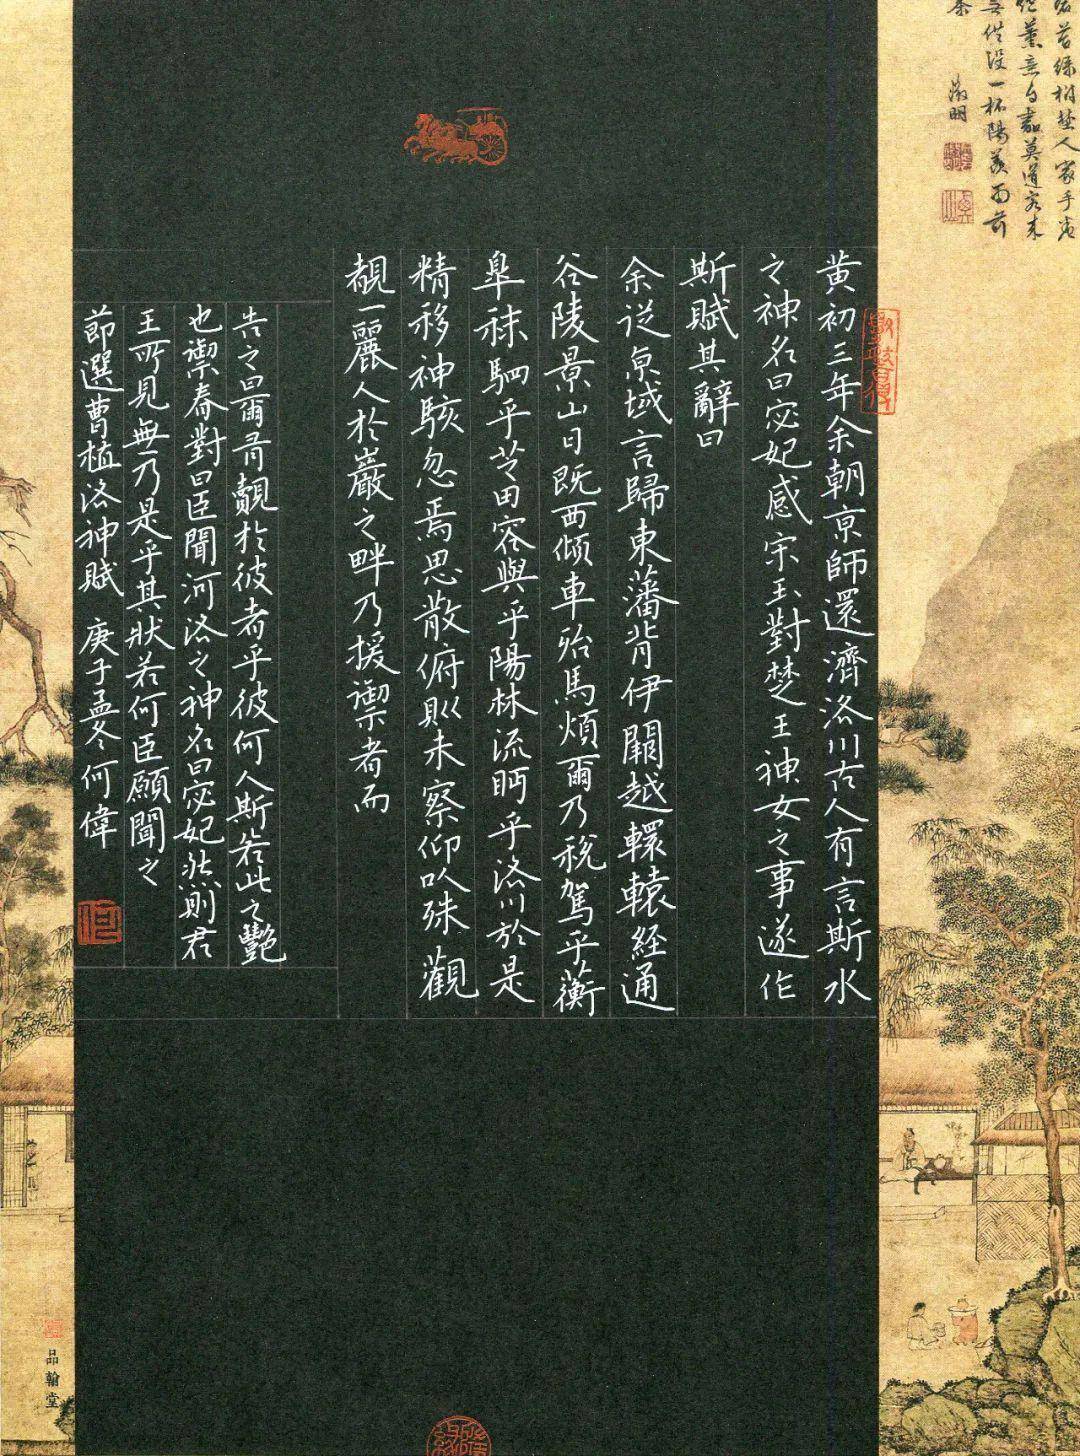 莫道客來
無供設一杯陽羨雨前
茶
徵明
黄初三年余朝京師還濟洛川古人有言斯水
之神名曰宓妃感宋玉對楚王神女之事遂作
斯賦其辭曰
余從京域言歸東藩背伊闕越轘轅経通
谷陵景山日既西傾車殆馬煩爾乃税駕乎蘅
皐秣駟乎芝田容與乎陽林流眄乎洛川於是
精移神駭忽焉思散俯則未察仰以殊觀
覩一麗人於巖之畔乃援禦者而
告之曰爾有覿於彼者乎彼何人斯若此之艷
也禦者對曰臣聞河洛之神名曰宓妃然則君
王所見無乃是乎其狀若何臣願聞之
節選曹植洛神賦 庚子孟冬何偉
品翰堂